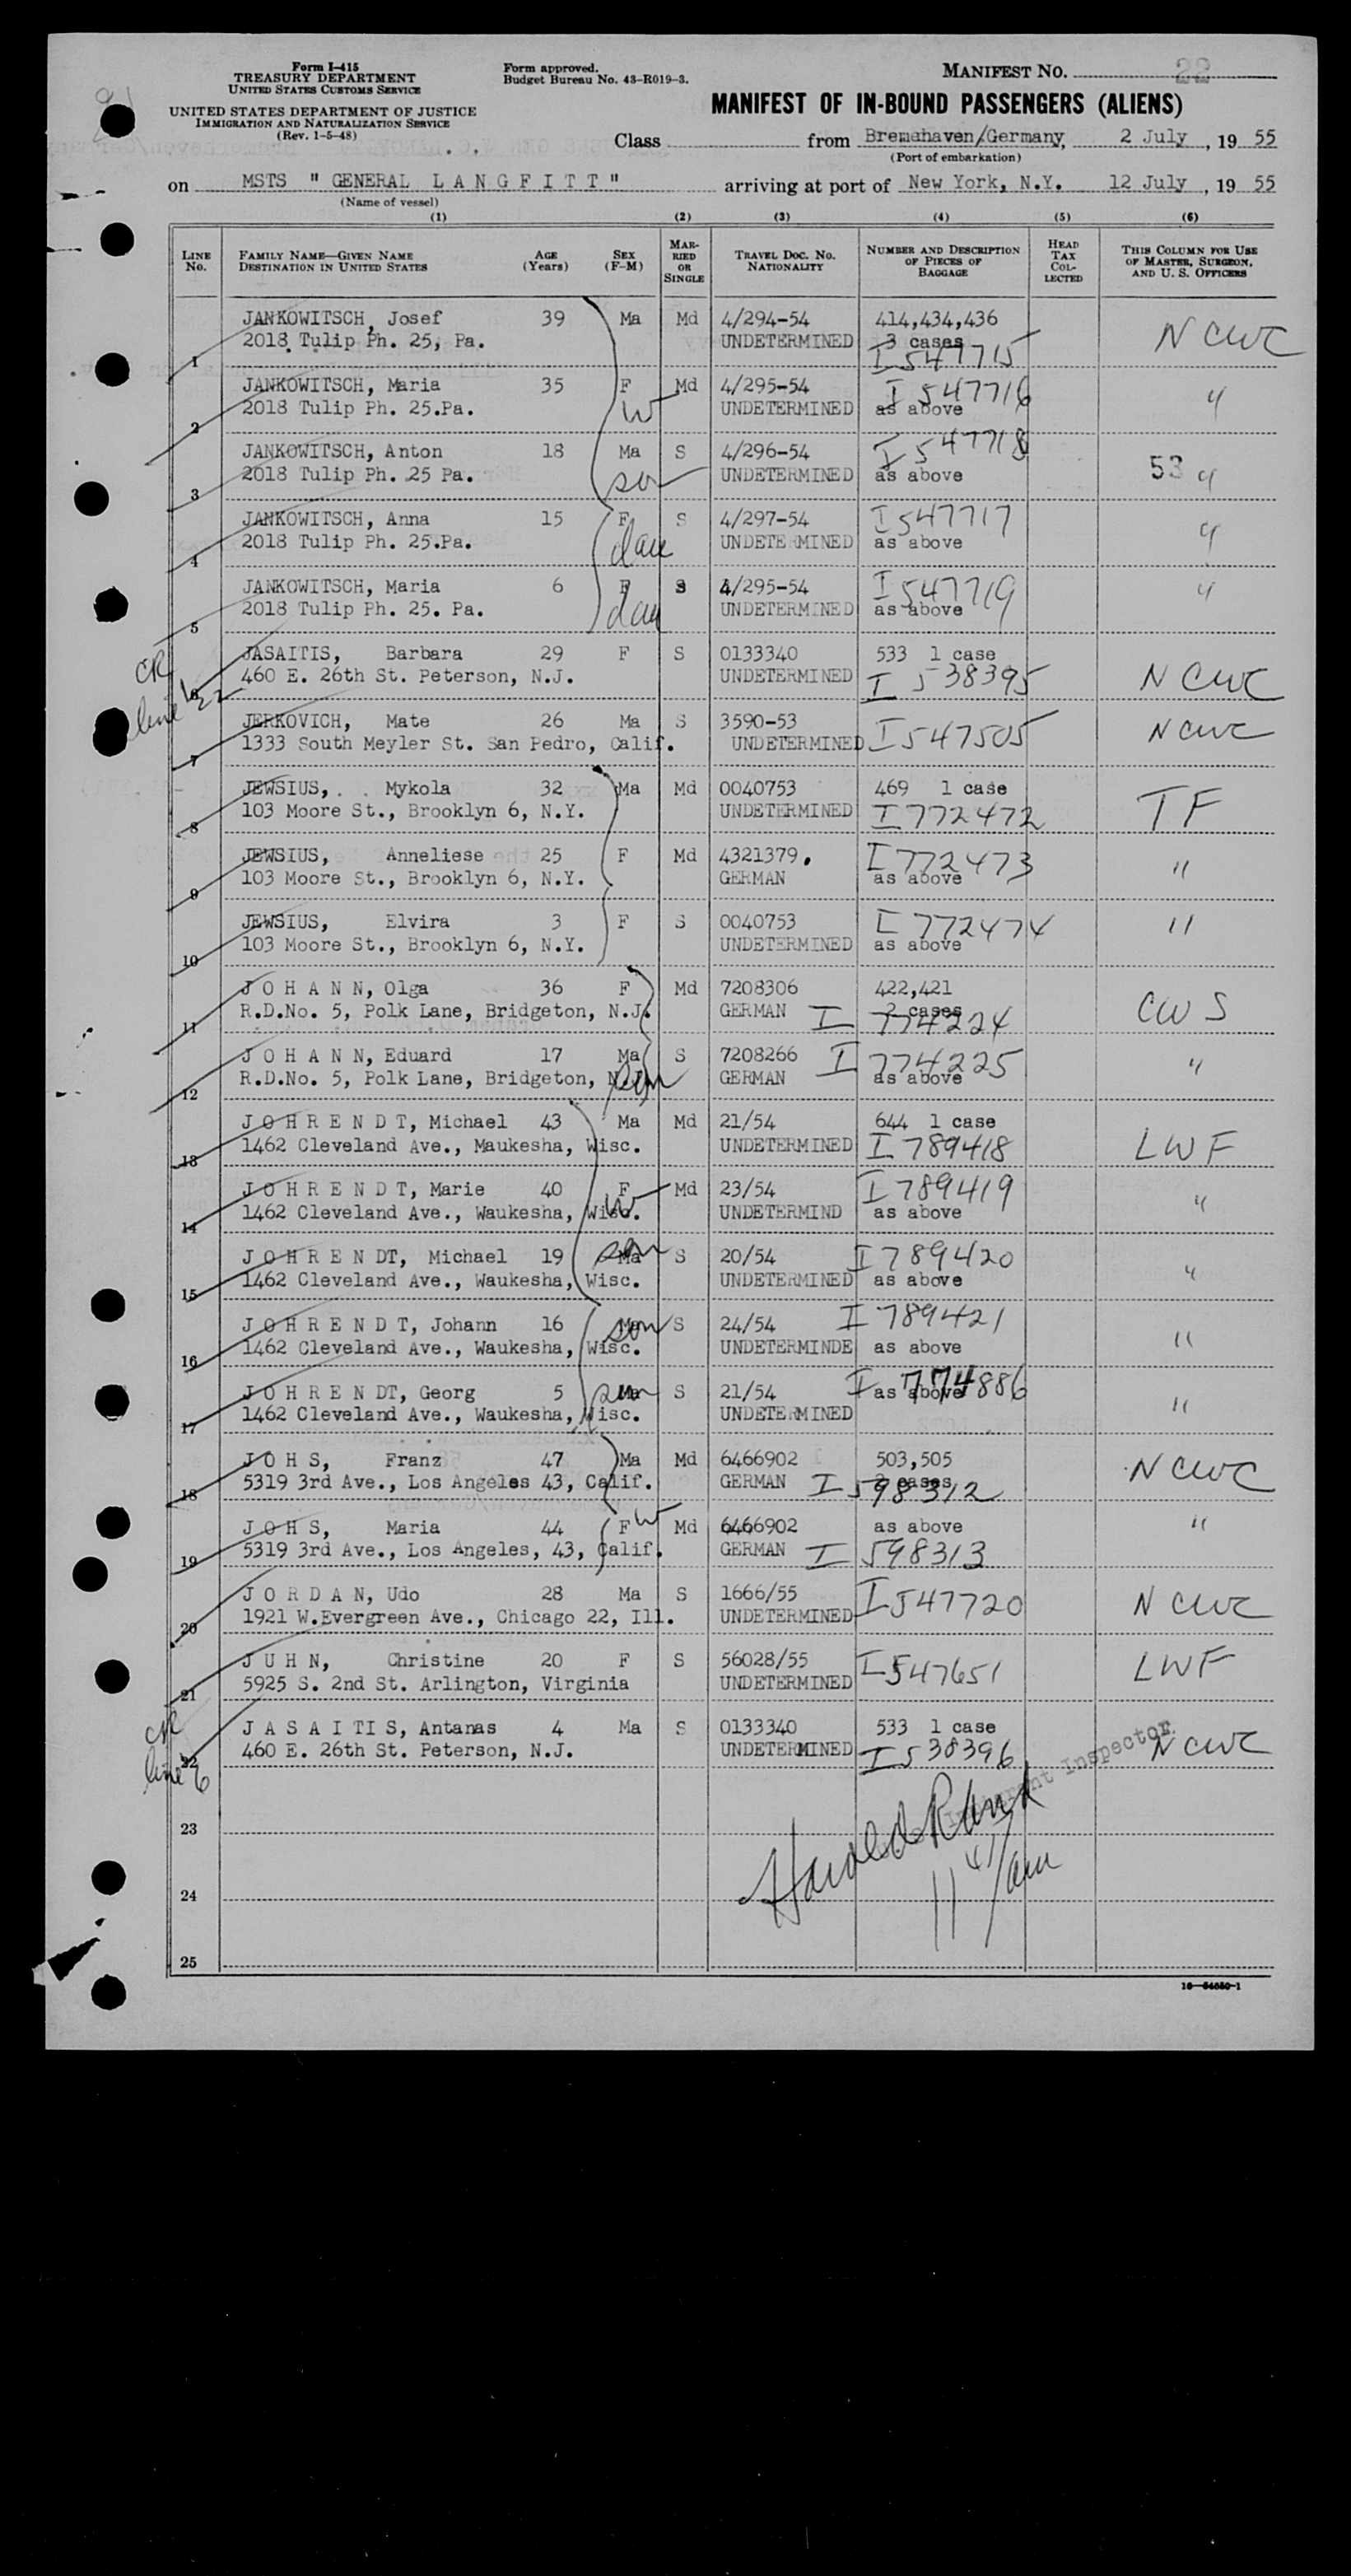 Form I-415
TREASURY DEPARTMENT
UNITED STATES CUSTOMS SERVICE
UNITED STATES DEPARTMENT OF JUSTICE
IMMIGRATION AND NATURALIZATION SERVICE
(Rev. 1-5-48)
Form approved.
Budget Bureau No. 43-R019-3.
MANIFEST NO. 22
MANIFEST OF IN-BOUND PASSENGERS (ALIENS)
Class from Bremehaven/Germany, 2 July, 19 55
(Port of embarkation)
on MSTS " GENERAL L A N G F I T T " arriving at port of New York, N.Y. 12 July, 19 55
(Name of vessel)
(1) (2) (3) (4) (5) (6)
LINE No. FAMILY NAME—GIVEN NAME DESTINATION IN UNITED STATES AGE (Years) SEX (F-M) MARRIED OR SINGLE TRAVEL DOC. NO. NATIONALITY NUMBER AND DESCRIPTION OF PIECES OF BAGGAGE HEAD TAX COLLECTED THIS COLUMN FOR USE OF MASTER, SURGEON, AND U. S. OFFICERS
JANKOWITSCH, Josef 39 Ma Md 4/294-54 414,434,436 NCWC
1 2018 Tulip Ph. 25, Pa. UNDETERMINED 3 cases I 547715
JANKOWITSCH, Maria 35 F Md 4/295-54 I 547716 "
2 2018 Tulip Ph. 25.Pa. W UNDETERMINED as above
JANKOWITSCH, Anton 18 Ma S 4/296-54 I 547718
3 2018 Tulip Ph. 25 Pa. son UNDETERMINED as above 53 "
JANKOWITSCH, Anna 15 F S 4/297-54 I 547717
4 2018 Tulip Ph. 25.Pa. dau UNDETERMINED as above "
JANKOWITSCH, Maria 6 F S 4/295-54 I 547719 "
5 2018 Tulip Ph. 25. Pa. dau UNDETERMINED as above
CR line 22
JASAITIS, Barbara 29 F S 0133340 533 1 case
6 460 E. 26th St. Peterson, N.J. UNDETERMINED I 538395 NCWC
JERKOVICH, Mate 26 Ma S 3590-53 NCWC
7 1333 South Meyler St. San Pedro, Calif. UNDETERMINED I 547505
JEWSIUS, . . Mykola 32 Ma Md 0040753 469 1 case
8 103 Moore St., Brooklyn 6, N.Y. UNDETERMINED I 772472 TF
JEWSIUS, Anneliese 25 F Md 4321379. I 772473
9 103 Moore St., Brooklyn 6, N.Y. GERMAN as above "
JEWSIUS, Elvira 3 F S 0040753 I 772474 "
10 103 Moore St., Brooklyn 6, N.Y. UNDETERMINED as above
J O H A N N, Olga 36 F Md 7208306 422,421
11 R.D.No. 5, Polk Lane, Bridgeton, N.J. GERMAN 2 cases I 774224 CWS
J O H A N N, Eduard 17 Ma S 7208266 I 774225 "
12 R.D.No. 5, Polk Lane, Bridgeton, N.J. son GERMAN as above
J O H R E N D T, Michael 43 Ma Md 21/54 644 1 case
13 1462 Cleveland Ave., Maukesha, Wisc. UNDETERMINED I 789418 LWF
J O H R E N D T, Marie 40 F W Md 23/54 I 789419
14 1462 Cleveland Ave., Waukesha, Wisc. UNDETERMIND as above "
J O H R E N DT, Michael 19 Ma son S 20/54 I 789420
15 1462 Cleveland Ave., Waukesha, Wisc. UNDETERMINED as above "
J O H R E N D T, Johann 16 Ma son S 24/54 I 789421
16 1462 Cleveland Ave., Waukesha, Wisc. UNDETERMINDE as above "
J O H R E N DT, Georg 5 Ma son S 21/54 as above I 774886
17 1462 Cleveland Ave., Waukesha, Wisc. UNDETERMINED "
J O H S, Franz 47 Ma Md 6466902 503,505
18 5319 3rd Ave., Los Angeles 43, Calif. GERMAN 2 cases I 598312 NCWC
J O H S, Maria 44 F W Md 6466902 as above "
19 5319 3rd Ave., Los Angeles, 43, Calif. GERMAN I 598313
J O R D A N, Udo 28 Ma S 1666/55 I 547720 NCWC
20 1921 W.Evergreen Ave., Chicago 22, Ill. UNDETERMINED
J U H N, Christine 20 F S 56028/55 I 547651 LWF
21 5925 S. 2nd St. Arlington, Virginia UNDETERMINED
CR line 6
J A S A I TI S, Antanas 4 Ma S 0133340 533 1 case
22 460 E. 26th St. Peterson, N.J. UNDETERMINED I 538396 NCWC
Immigrant Inspector
23
Harold Rand
24 11 41/am
25
16—54650-1